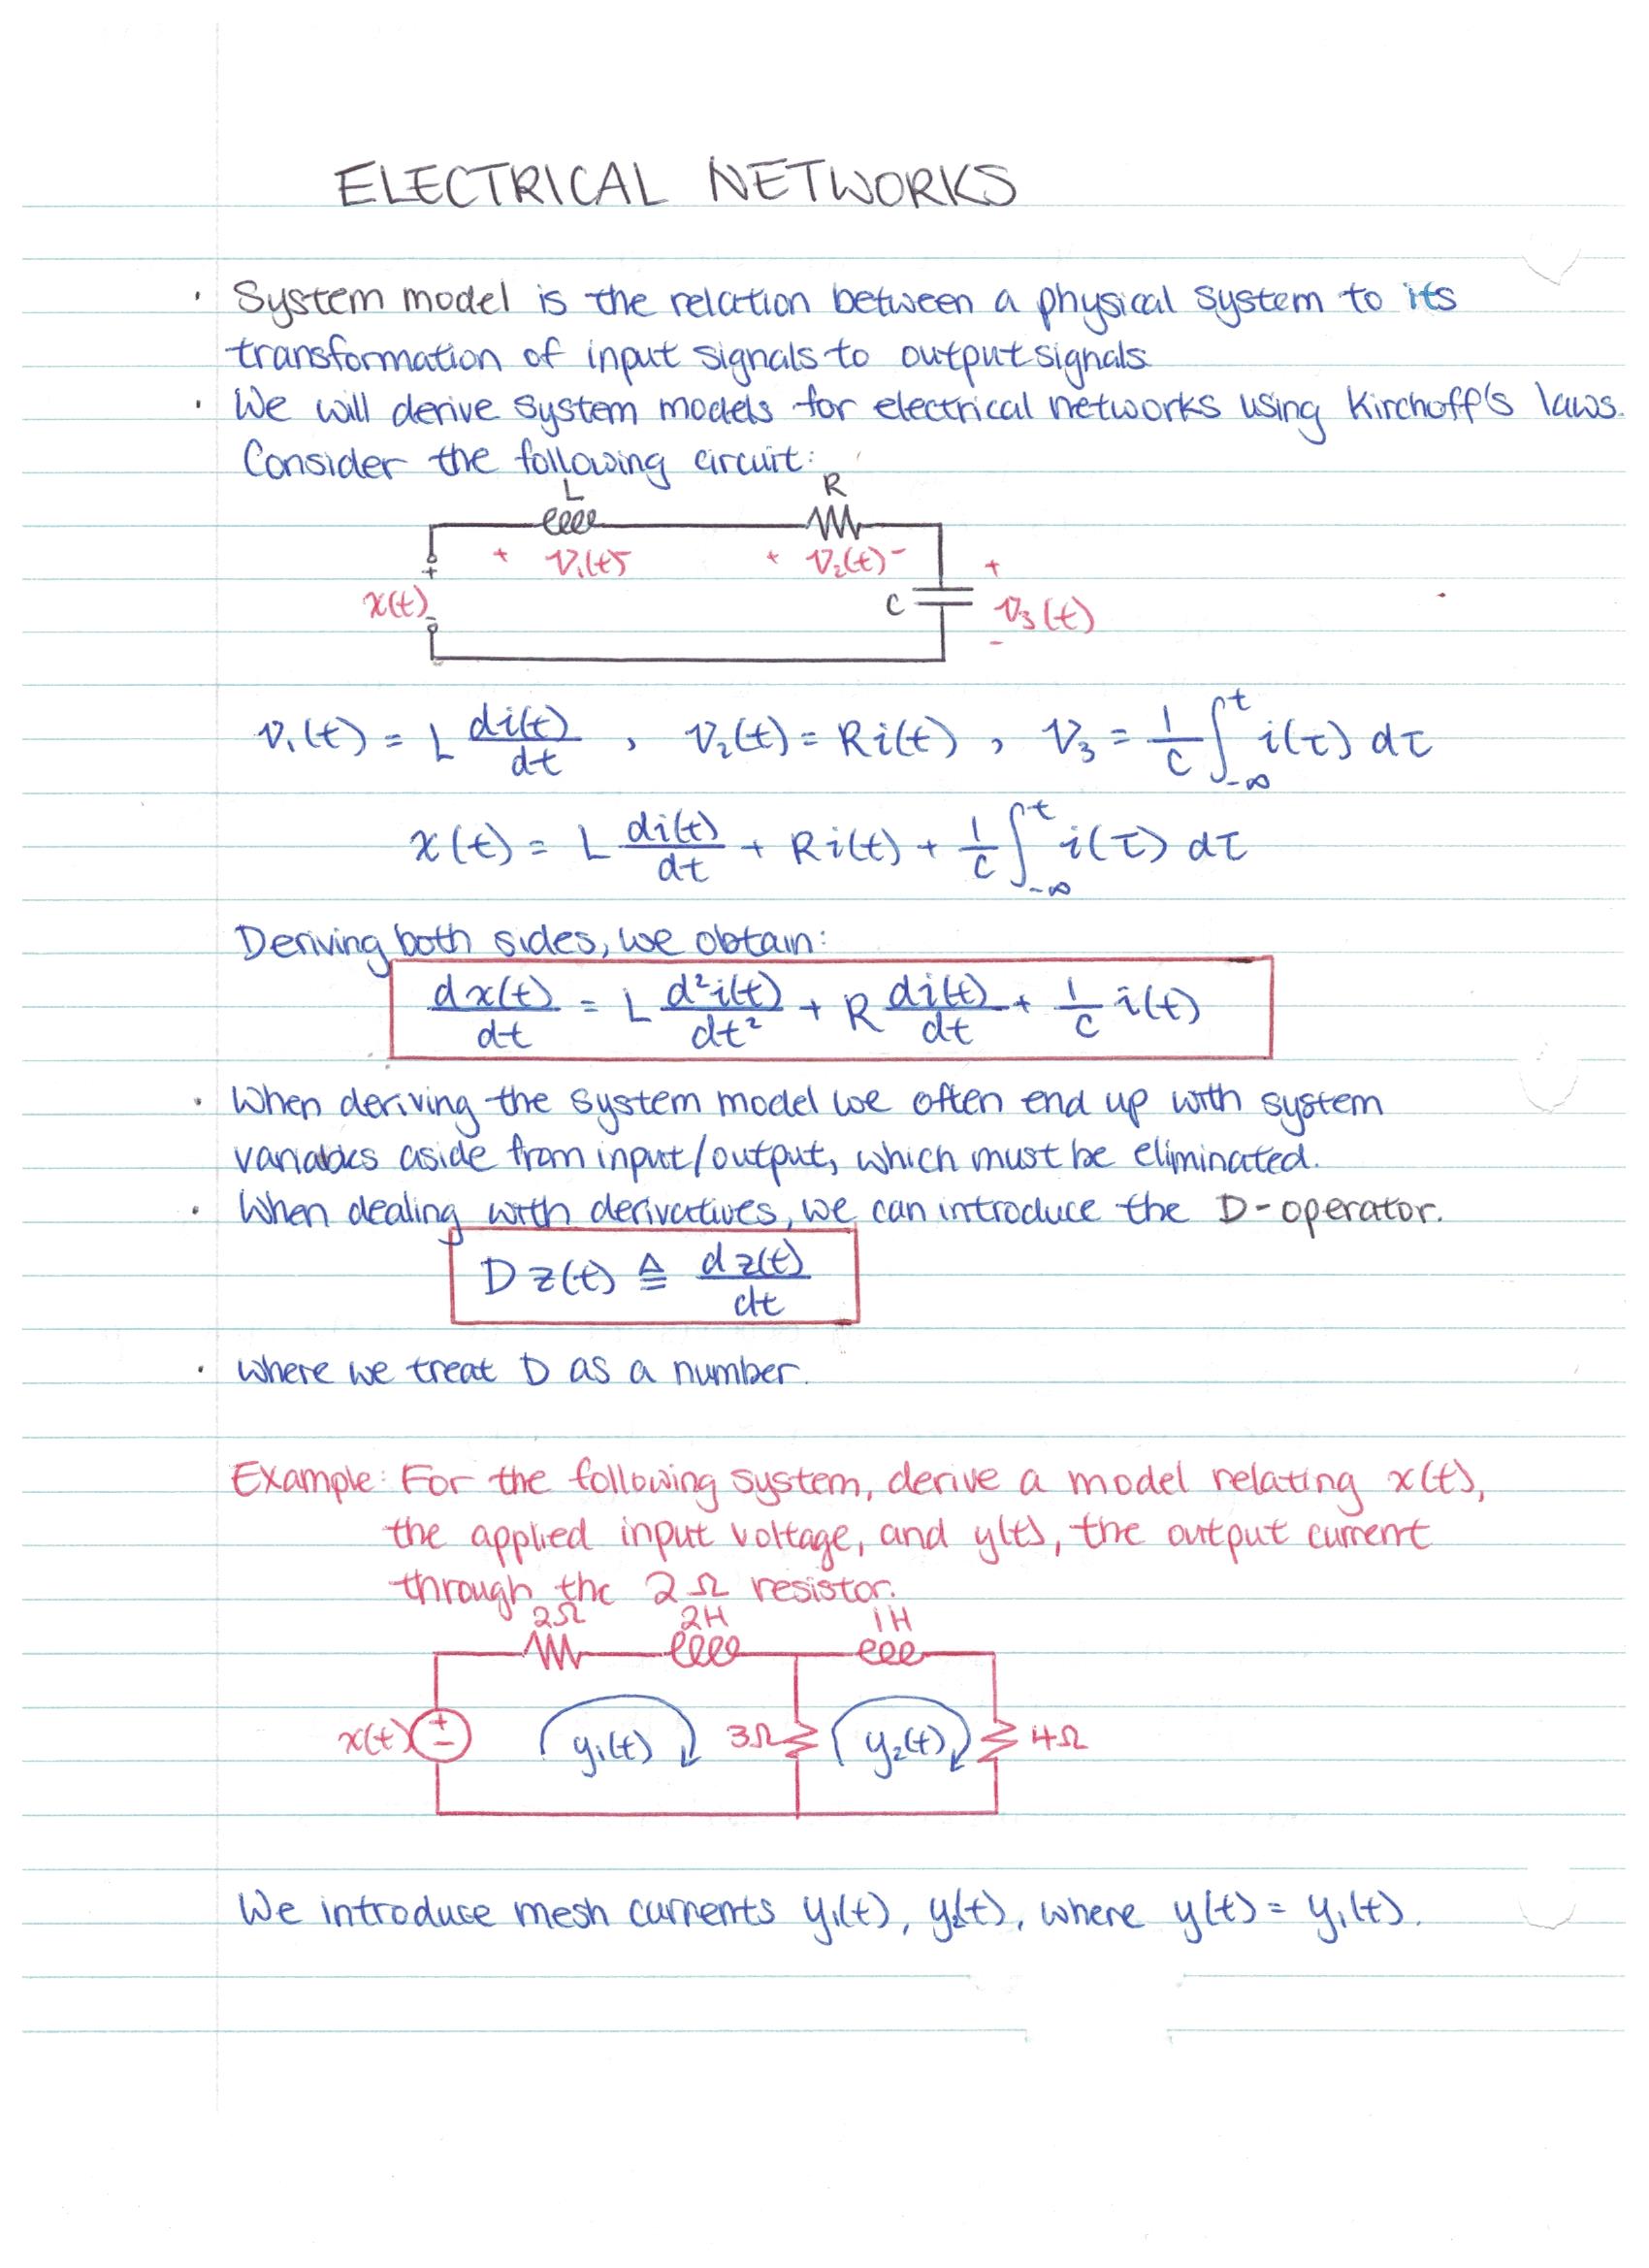 ELECTRICAL NETWORKS
· System model is the relation between a physical system to its
transformation of input signals to output signals
· We will derive system models for electrical networks using Kirchoff's laws.
Consider the following circuit:
L R
+ v₁(t) - + v₂(t) - +
+
x(t) C v₃(t)
- -
v₁(t) = L di(t)/dt , v₂(t) = Ri(t) , v₃ = 1/C ∫_{-∞}^{t} i(τ) dτ
x(t) = L di(t)/dt + Ri(t) + 1/C ∫_{-∞}^{t} i(τ) dτ
Deriving both sides, we obtain:
dx(t)/dt = L d²i(t)/dt² + R di(t)/dt + 1/C i(t)
· When deriving the system model we often end up with system
variables aside from input/output, which must be eliminated.
· When dealing with derivatives, we can introduce the D-operator.
D z(t) ≜ dz(t)/dt
· where we treat D as a number.
Example: For the following system, derive a model relating x(t),
the applied input voltage, and y(t), the output current
through the 2Ω resistor.
2Ω 2H 1H
x(t) + - y₁(t) 3Ω y₂(t) 4Ω
We introduce mesh currents y₁(t), y₂(t), where y(t) = y₁(t).